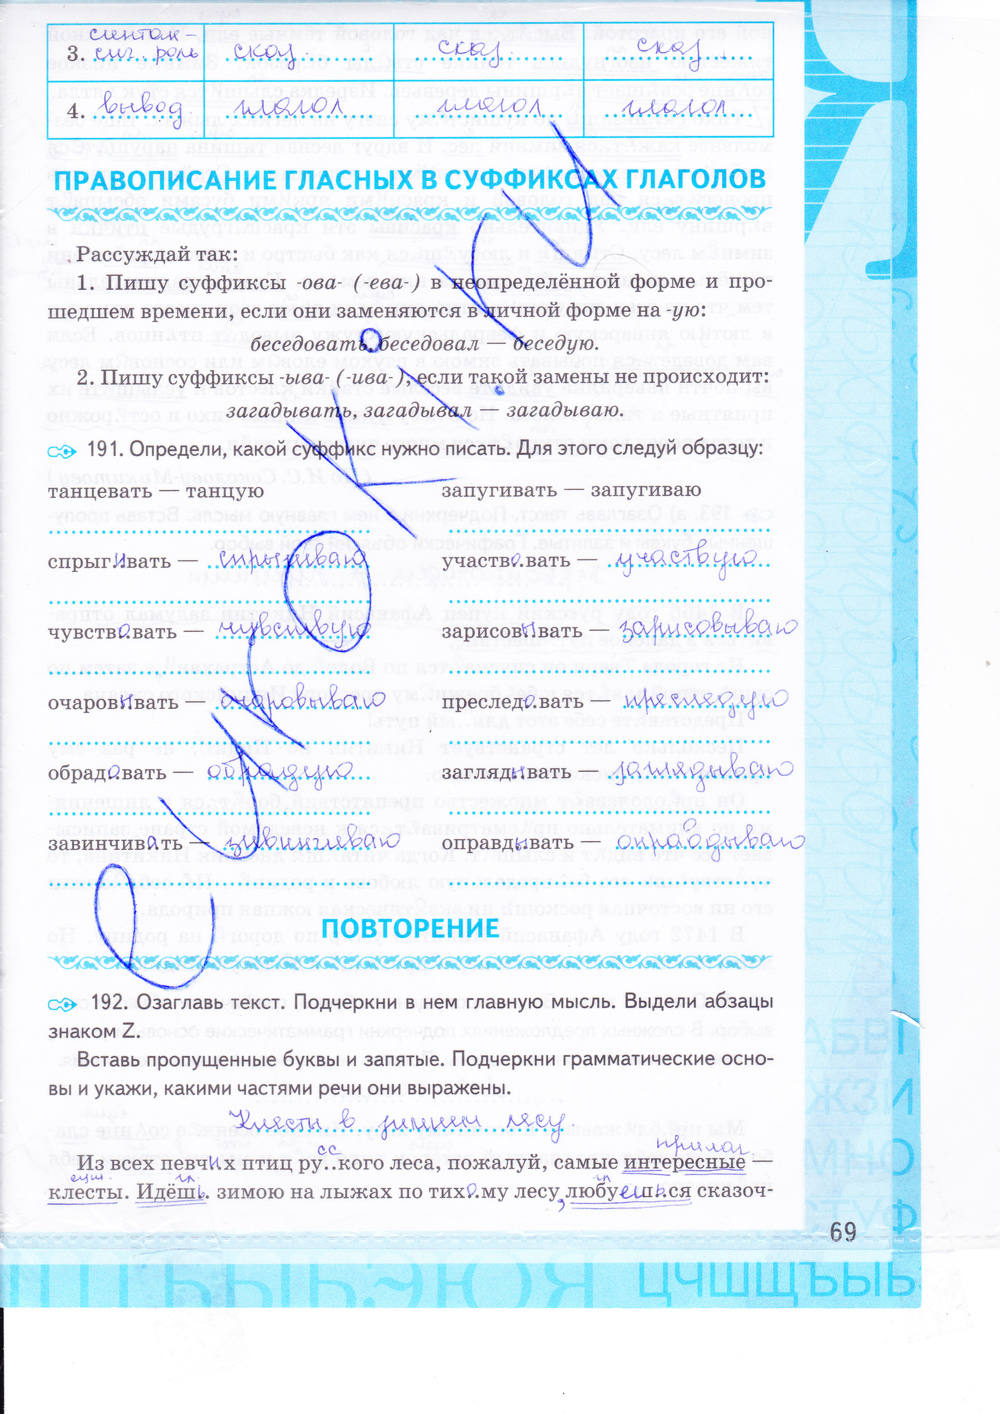 3. синтак-
сич. роль сказ. сказ. сказ.
4. вывод. глагол глагол глагол
ПРАВОПИСАНИЕ ГЛАСНЫХ В СУФФИКСАХ ГЛАГОЛОВ
Рассуждай так:
1. Пишу суффиксы -ова- (-ева-) в неопределённой форме и про-
шедшем времени, если они заменяются в личной форме на -ую:
беседовать, беседовал — беседую.
2. Пишу суффиксы -ыва- (-ива-), если такой замены не происходит:
загадывать, загадывал — загадываю.
191. Определи, какой суффикс нужно писать. Для этого следуй образцу:
танцевать — танцую запугивать — запугиваю
спрыгивать — спрыгиваю участвовать — участвую
чувствовать — чувствую зарисовывать — зарисовываю
очаровывать — очаровываю преследовать — преследую
обрадовать — обрадую заглядывать — заглядываю
завинчивать — завинчиваю оправдывать — оправдываю
ПОВТОРЕНИЕ
192. Озаглавь текст. Подчеркни в нем главную мысль. Выдели абзацы
знаком Z.
Вставь пропущенные буквы и запятые. Подчеркни грамматические осно-
вы и укажи, какими частями речи они выражены.
Клесты в зимнем лесу.
прилаг.
Из всех певчих птиц ру..сского леса, пожалуй, самые интересные —
сущ. гл. гл.
клесты. Идёшь. зимою на лыжах по тихому лесу, любуешься сказоч-
69
АБВГ
ЖЗИ
МНО
СТУФ
ЦЧШЩЪЫЬ
ОЦЕНОКИ.КИ